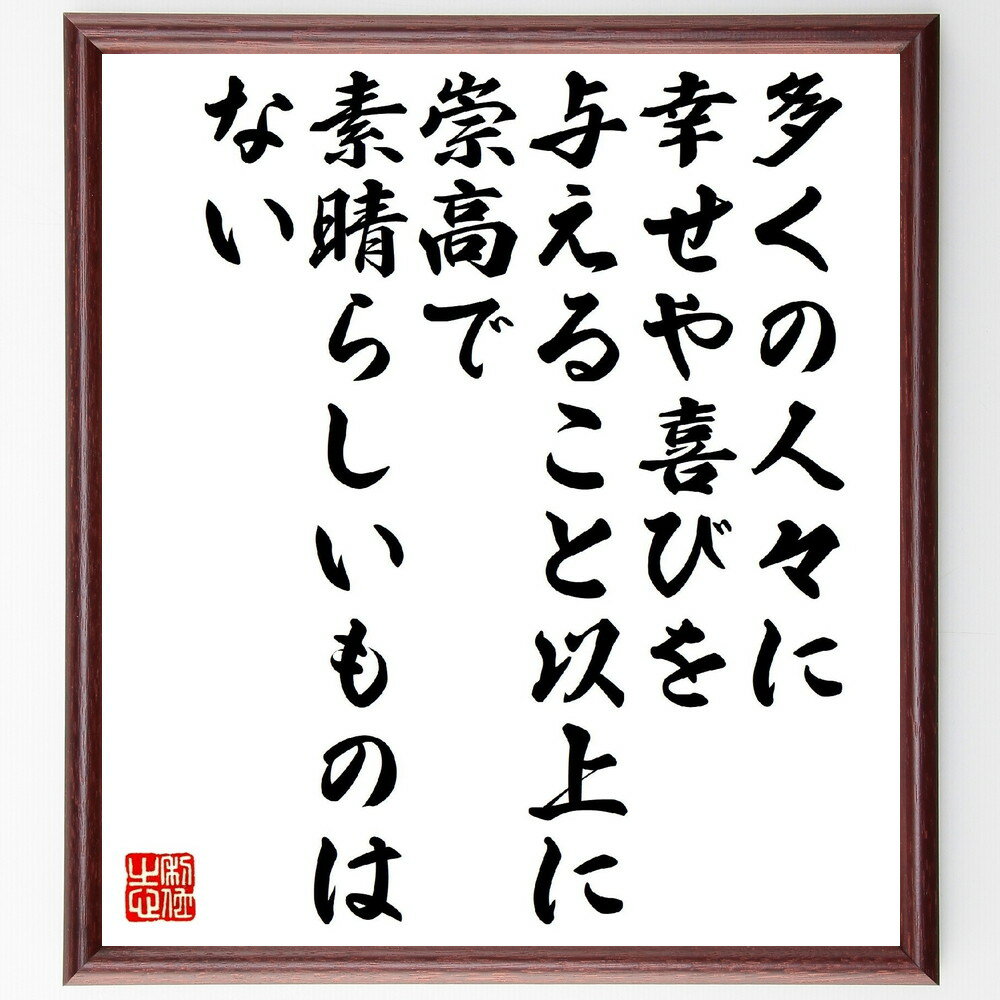 多くの人々に
幸せや喜びを
与えること以上に
崇高で
素晴らしいものは
ない